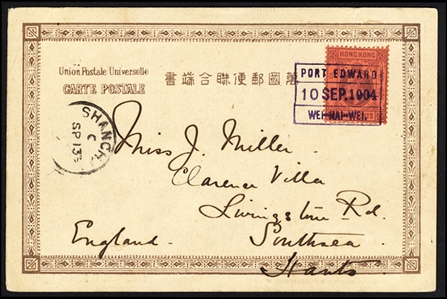 Union Postale Universelle
CARTE POSTALE
書端合聯便郵國萬
HONGKONG
PORT EDWARD
10 SEP. 1904
WEI-HAI-WEI.
SHANGH
C
SP 13
Miss J. Miller.
Clarence Villa
Livingstone Rd.
Southsea
England.
Hants.